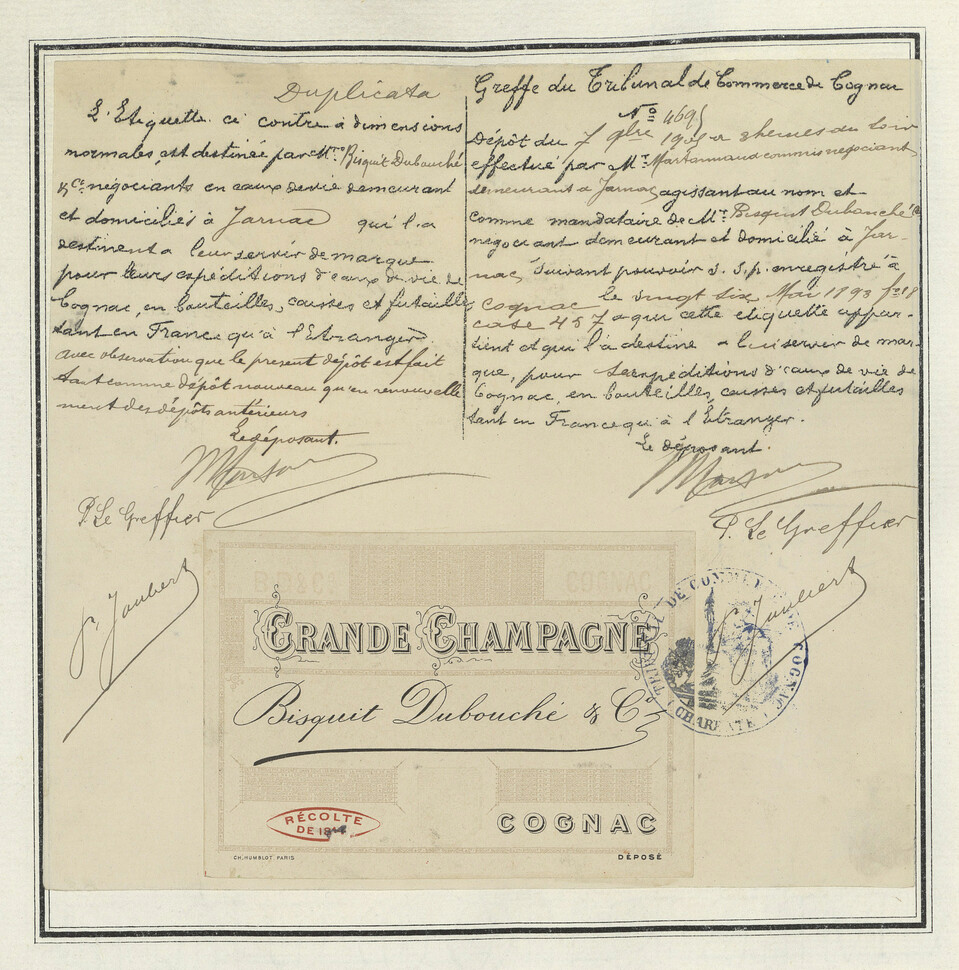 Duplicata
L'Etiquette ci contre à dimensions
normales, est destinée par Mrs Bisquit Dubouché
& Cie négociants en eaux de vie demeurant
et domiciliés à Jarnac qui l'a
destinent a leur servir de marque
pour leurs expéditions d'eaux de vie de
Cognac, en bouteilles, caisses et futailles
tant en France qu'à l'Etranger.
avec observation que le present dépôt est fait
tant comme dépôt nouveau qu'en renouvelle
ment des dépôts antérieurs
Le déposant.
P. Le Greffier
P. Joubert
Greffe du Tribunal de Commerce de Cognac
No 4695
Dépôt du 7 9bre 1905 a 2 heures du soir
effectué par Mr commis négociant
demeurant a Jarnac agissant au nom et
comme mandataire de Mrs Bisquit Dubouché & Cie
négociant demeurant et domicilié à Jar-
nac, suivant pouvoir s. s. p. enregistré à
Cognac le vingt six Mai 1893 fo 18
case 457 a qui cette etiquette appar-
tient et qui l'a destine a lui servir de mar-
que, pour ses expéditions d'eaux de vie de
Cognac, en bouteilles, caisses et futailles
tant en France qu'à l'Etranger.
Le déposant.
P. Le Greffier
P. Joubert
B.D. & Co COGNAC
GRANDE CHAMPAGNE
Bisquit Dubouché & Co
RÉCOLTE
DE
COGNAC
CH. HUMBLOT PARIS
DÉPOSÉ
TRIBUNAL DE COMMERCE DE COGNAC
(CHARENTE)